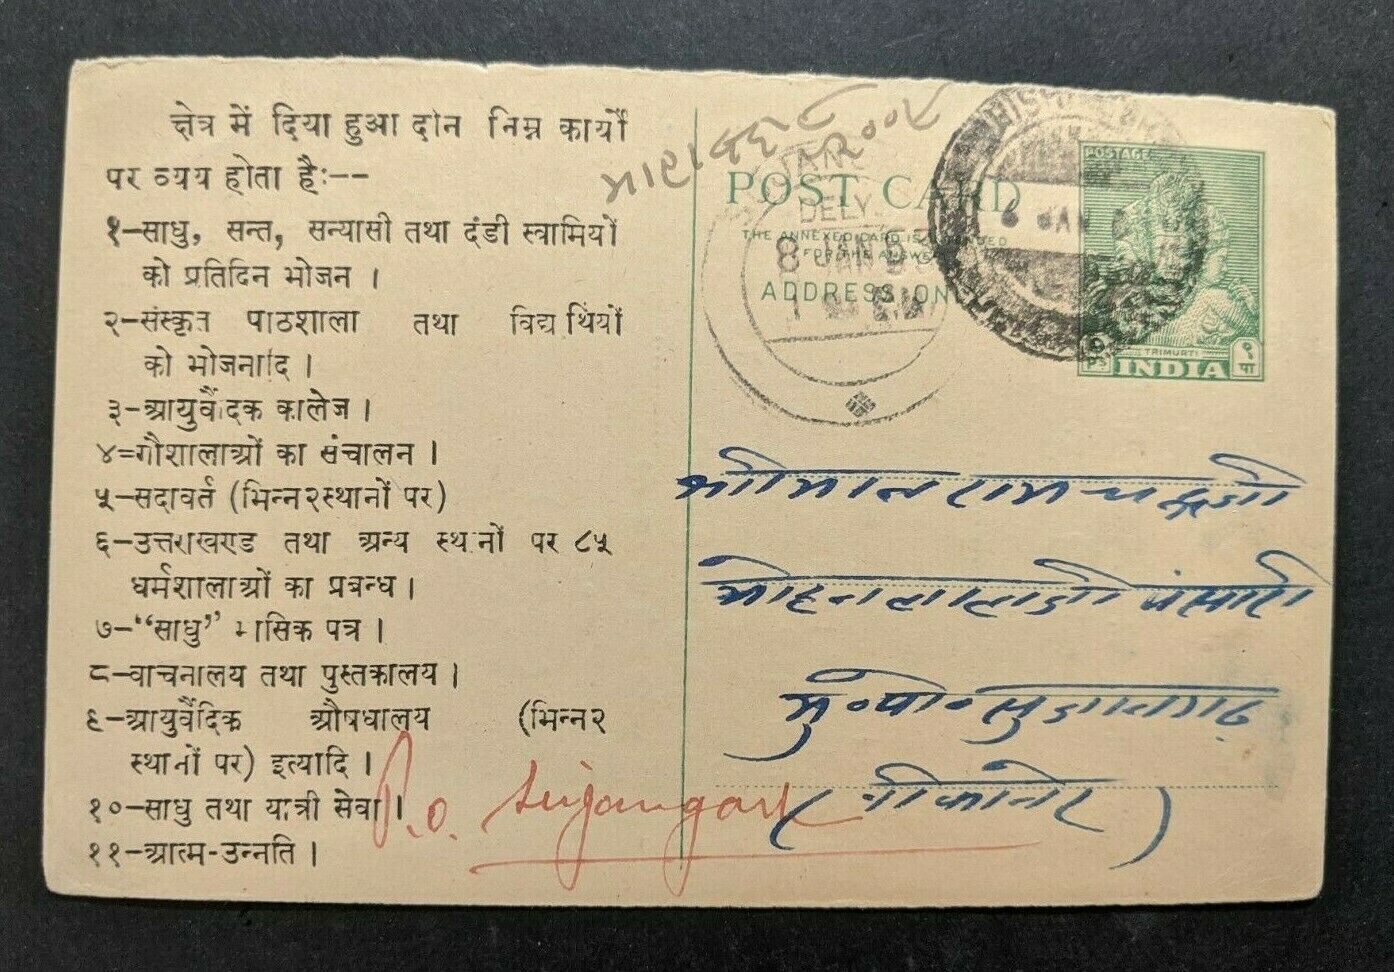 क्षेत्र में दिया हुआ दान निम्न कार्यों
पर व्यय होता है:--
१-साधु, सन्त, सन्यासी तथा दंडी स्वामियों
को प्रतिदिन भोजन ।
२-संस्कृत पाठशाला तथा विद्यर्थियों
को भोजनादि ।
३-आयुर्वैदिक कालेज ।
४=गौशालाओं का संचालन ।
५-सदावर्त (भिन्न२स्थानों पर)
६-उत्तराखण्ड तथा अन्य स्थानों पर ८५
धर्मशालाओं का प्रबन्ध ।
७-“साधु” मासिक पत्र ।
८-वाचनालय तथा पुस्तकालय ।
९-आयुर्वैदिक औषधालय (भिन्न२
स्थानों पर) इत्यादि ।
१०-साधु तथा यात्री सेवा ।
११-आत्म-उन्नति ।
P.O. Sujangarh
POST CARD
THE ANNEXED CARD IS INTENDED
FOR THE ANSWER
ADDRESS ON
DELY.
8 JAN 5
6 JAN
POSTAGE
TRIMURTI
9 Ps INDIA ९ पा
रामचन्द्रजी
मोहनलालजी पंसारी
मु॰ पो॰ सुजानगढ़
(बीकानेर)